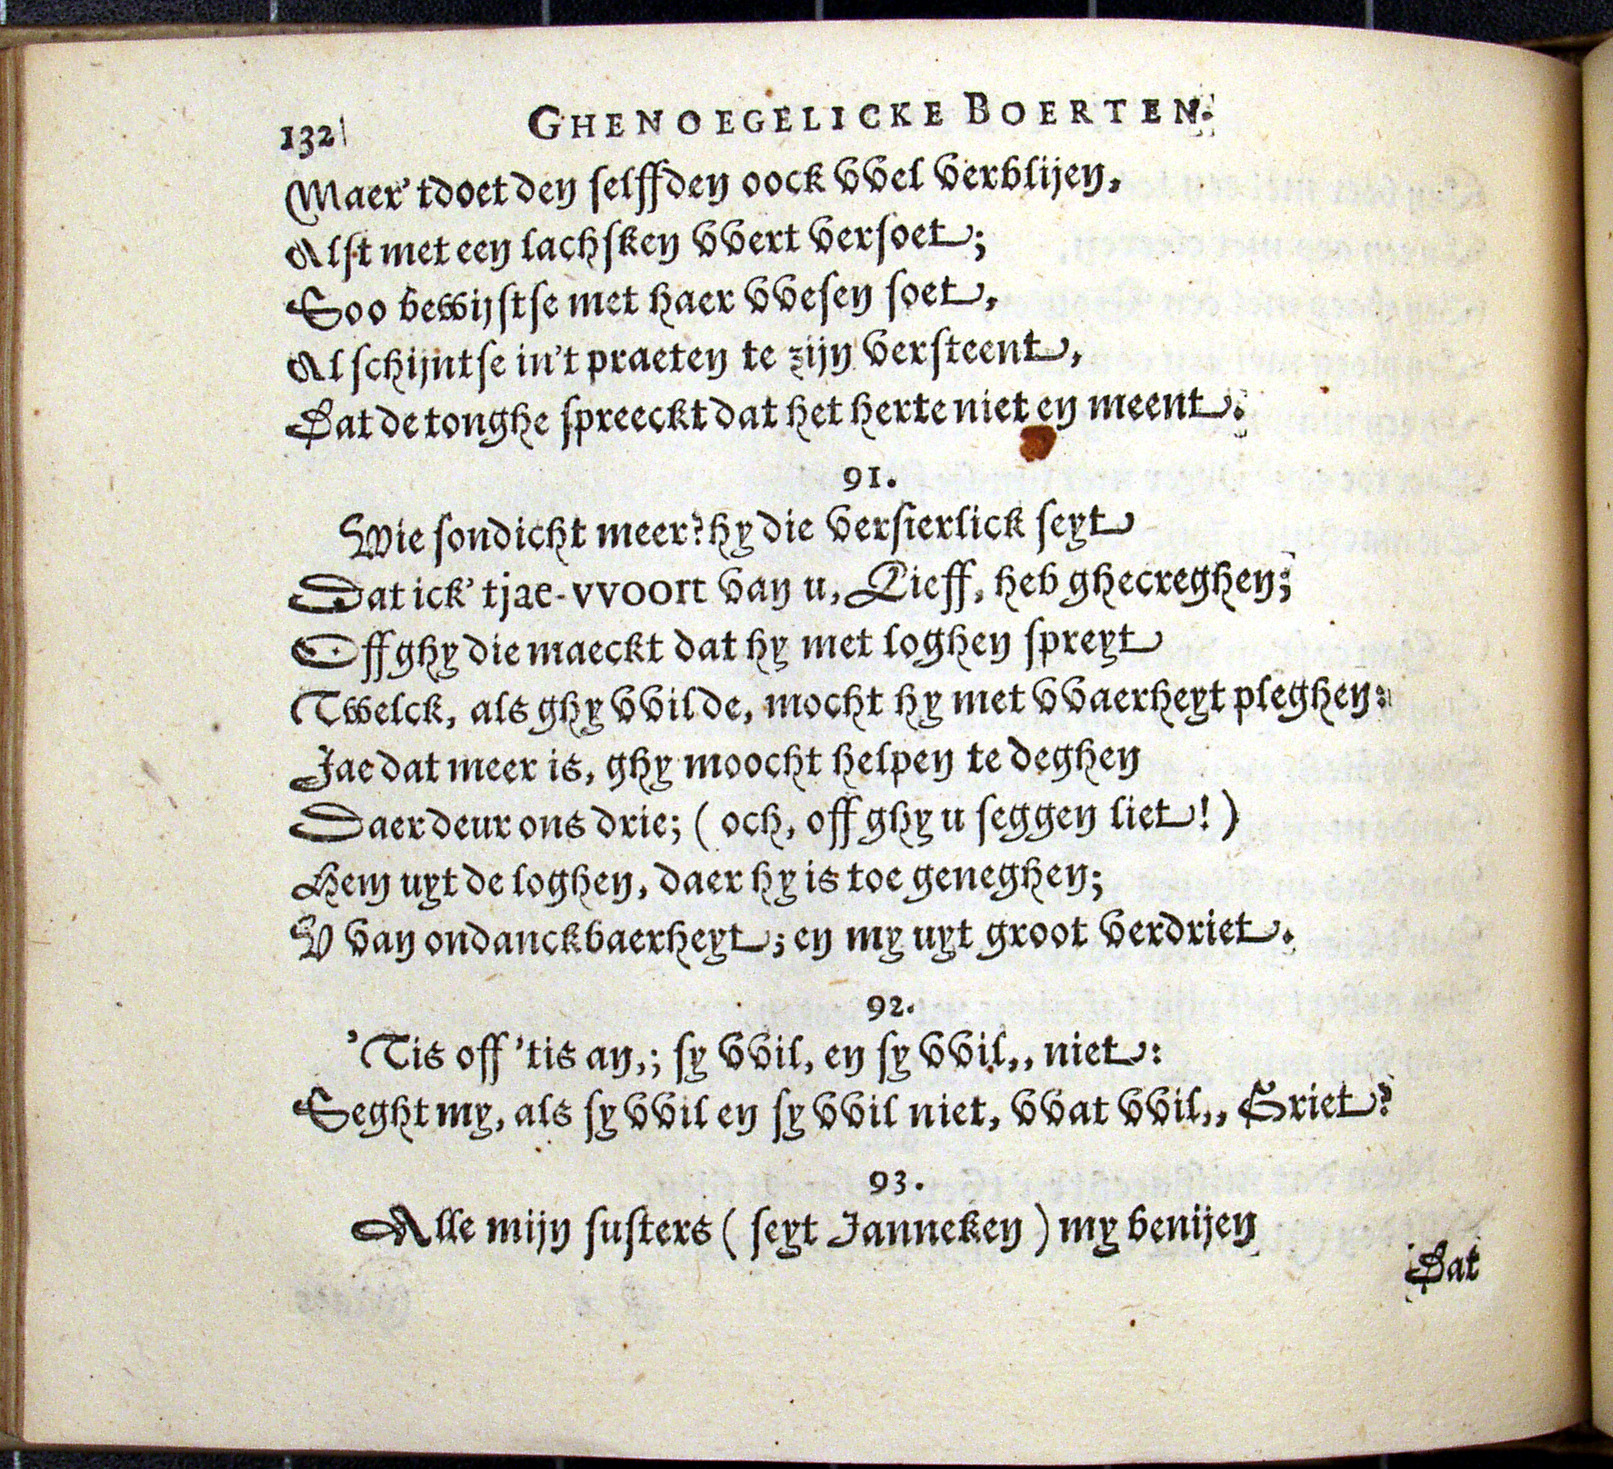 132 GHENOEGELICKE BOERTEN.
Maer 'tdoet den selffden oock vvel verblijen,
Alst met een lachsken vvert versoet;
Soo bewijstse met haer vvesen soet,
Al schijntse in't praeten te zijn versteent,
Dat de tonghe spreeckt dat het herte niet en meent.
91.
Wie sondicht meer? hy die versierlick seyt
Dat ick 'tjae-vvoort van u, Lieff, heb ghecreghen;
Off ghy die maeckt dat hy met loghen spreyt
Twelck, als ghy vvilde, mocht hy met vvaerheyt pleghen:
Jae dat meer is, ghy moocht helpen te deghen
Daer deur ons drie; ( och, off ghy u seggen liet! )
Hem uyt de loghen, daer hy is toe geneghen;
V van ondanckbaerheyt; en my uyt groot verdriet.
92.
'Tis off 'tis an,; sy vvil, en sy vvil,, niet:
Seght my, als sy vvil en sy vvil niet, vvat vvil,, Griet?
93.
Alle mijn susters ( seyt Janneken ) my benijen
Dat